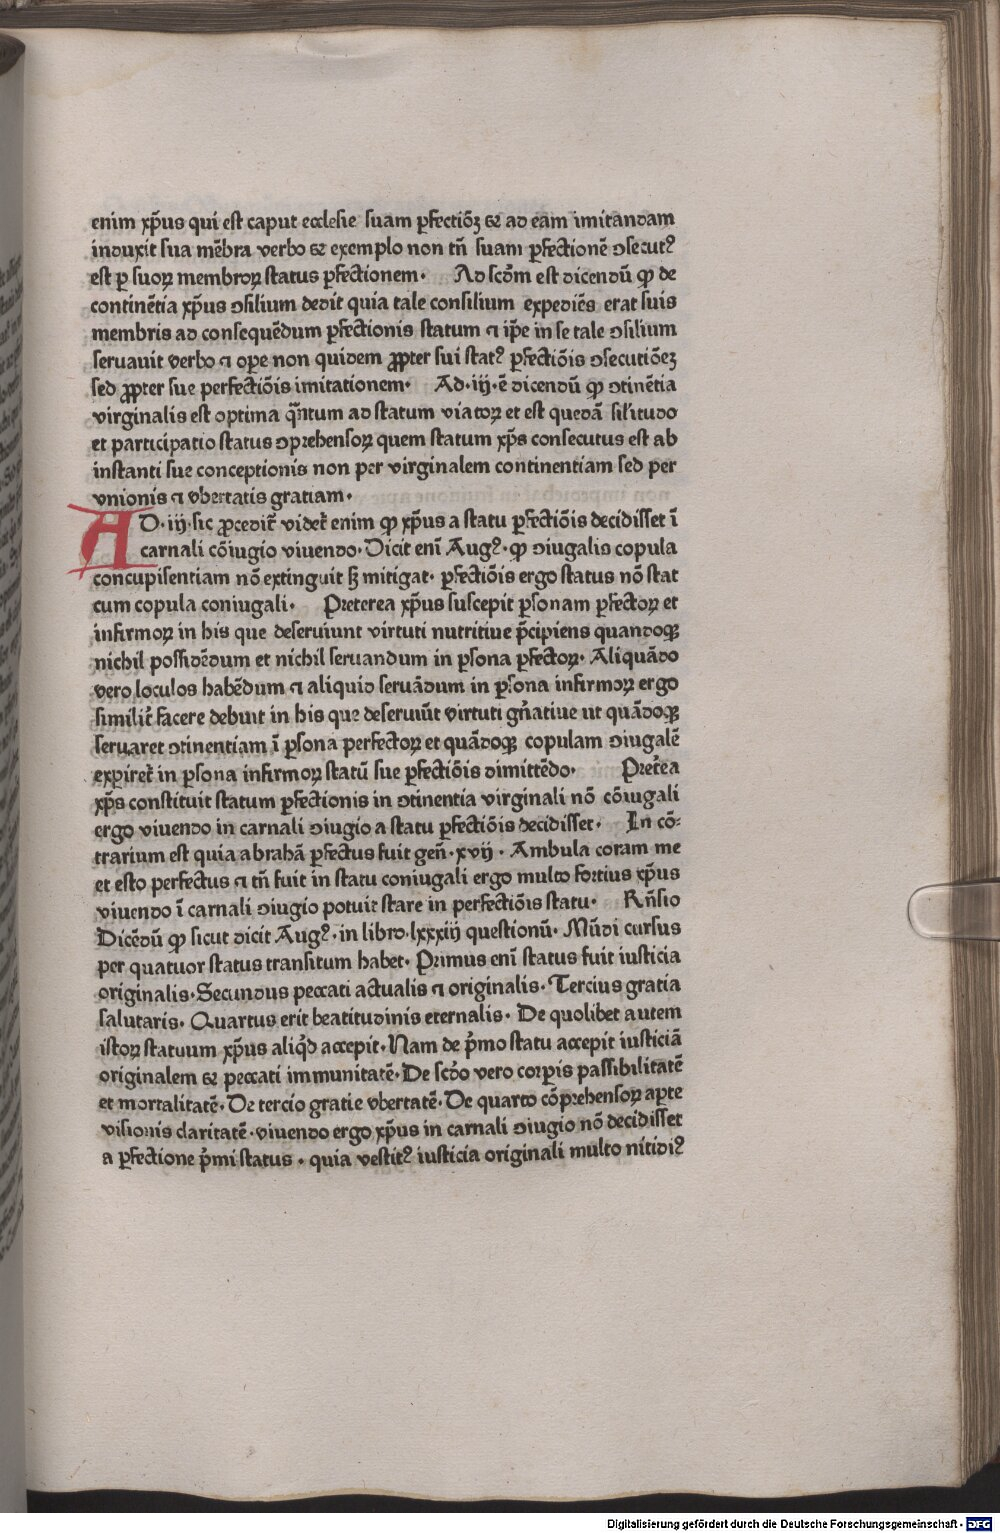 enim xp̄us qui est caput ecclesie suam ꝑfectiōꝫ ⁊ ad eam imitandam
induxit sua mēbra verbo ⁊ exemplo non tn̄ suam ꝑfectionē ↄsecutꝰ
est ꝑ suoꝝ membroꝝ status ꝑfectionem· Ad scđm est dicendū ꝙ de
continētia xp̄us ↄsilium dedit quia tale consilium expediēs erat suis
membris ad consequēdum ꝑfectionis statum ⁊ ip̄e in se tale ↄsilium
seruauit verbo ⁊ oꝑe non quidem ꝓpter sui statꝰ ꝑfectiōis ↄsecutiōeꝫ
sed ꝓpter sue perfectiōis imitationem· Ad·iij·ē dicendū ꝙ ↄtinētia
virginalis est optima qn̄tum ad statum viatoꝝ et est quedā sil'itudo
et participatio status ↄprehensoꝝ quem statum xp̄s consecutus est ab
instanti sue conceptionis non per virginalem continentiam sed per
vnionis ⁊ vbertatis gratiam·
AD·iij·sic ꝓcedit᷑ videt᷑ enim ꝙ xp̄us a statu ꝑfectiōis decidisset ī
carnali cōiugio viuendo·Dicit enī Augꝰ·ꝙ ↄiugalis copula
concupisentiam nō extinguit sꝫ mitigat· ꝑfectiōis ergo status nō stat
cum copula coniugali· Preterea xp̄us suscepit ꝑsonam ꝑfectoꝝ et
infirmoꝝ in his que deseruiunt virtuti nutritiue p̄cipiens quandoqꝫ
nichil possidēdum et nichil seruandum in ꝑsona ꝑfectoꝝ· Aliquādo
vero loculos habēdum ⁊ aliquid seruādum in ꝑsona infirmoꝝ ergo
similit᷑ facere debuit in his que deseruiūt virtuti gn̄atiue ut quādoqꝫ
seruaret ↄtinentiam ī ꝑsona perfectoꝝ et quādoqꝫ copulam ↄiugalē
expiret᷑ in ꝑsona infirmoꝝ statū sue ꝑfectiōis dimittēdo· Pret᷑ea
xp̄s constituit statum ꝑfectionis in ↄtinentia virginali nō cōiugali
ergo viuendo in carnali ↄiugio a statu ꝑfectiōis decidisset· In cō⸗
trarium est quia abrahā ꝑfectus fuit gen̄·xvij· Ambula coram me
et esto perfectus ⁊ tn̄ fuit in statu coniugali ergo multo fortius xp̄us
viuendo ī carnali ↄiugio potuit stare in perfectiōis statu· Rn̄sio
Dicēdū ꝙ sicut dicit Augꝰ·in libro·lxxxiij questionū· Mūdi cursus
per quatuor status transitum habet· Primus enī status fuit iusticia
originalis·Secundus peccati actualis ⁊ originalis·Tercius gratia
salutaris· Quartus erit beatitudinis eternalis· De quolibet autem
istoꝝ statuum xp̄us aliq̄d accepit·Nam de p̄mo statu accepit iusticiā
originalem ⁊ peccati immunitatē·De scđo vero corꝑis passibilitatē
et mortalitatē·De tercio gratie vbertatē·De quarto cōprehensoꝝ aperte
visionis claritatē·viuendo ergo xp̄us in carnali ↄiugio nō decidisset
a ꝑfectione p̄mi status · quia vestitꝰ iusticia originali multo nitidiꝰ
Digitalisierung gefördert durch die Deutsche Forschungsgemeinschaft - DFG